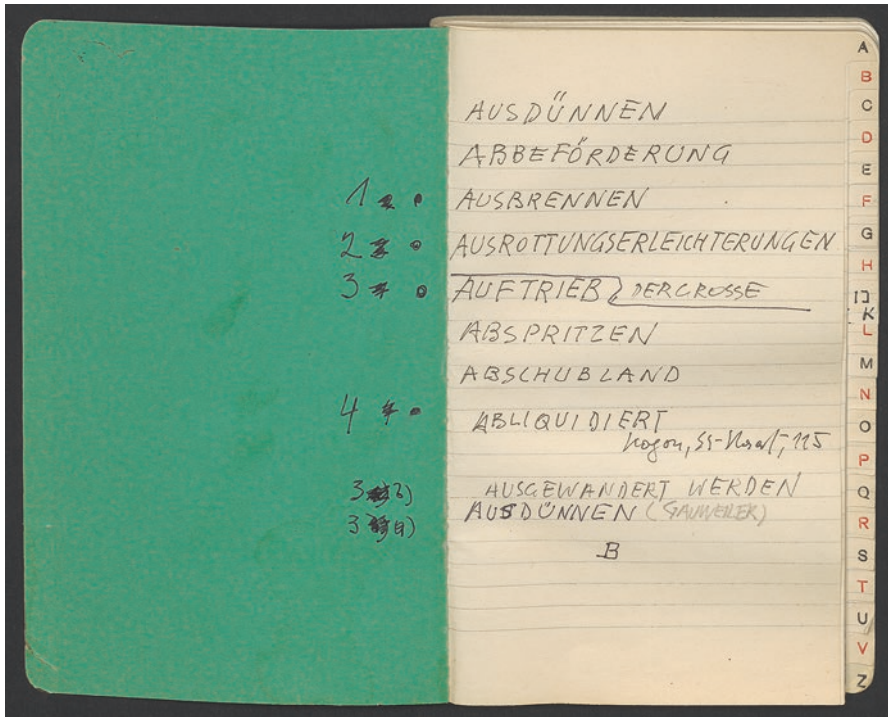 AUSDÜNNEN
ABBEFÖRDERUNG
1 AUSBRENNEN
2 AUSROTTUNGSERLEICHTERUNGEN
3 AUFTRIEB DER GROSSE
ABSPRITZEN
ABSCHUBLAND
4 ABLIQUIDIERT
Kogon, SS-Staat, 115
3 AUSGEWANDERT WERDEN
3 AUSDÜNNEN (GAUWEILER)
B
A
B
C
D
E
F
G
H
IJ
K
L
M
N
O
P
Q
R
S
T
U
V
Z